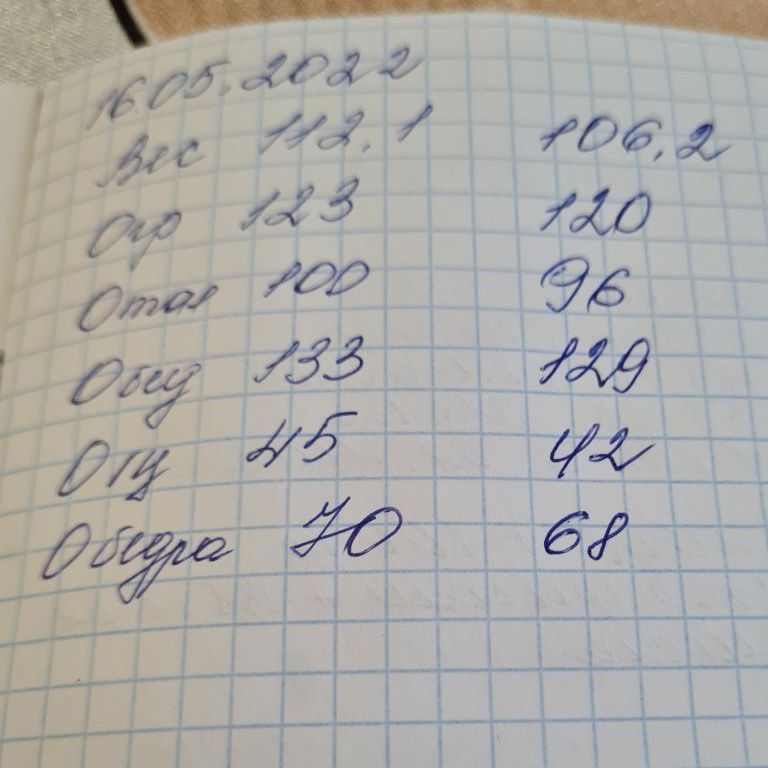 16.05.2022
Вес 112,1 106,2
Огр 123 120
Отал 100 96
Обед 133 129
Огц 45 42
Обедра 70 68